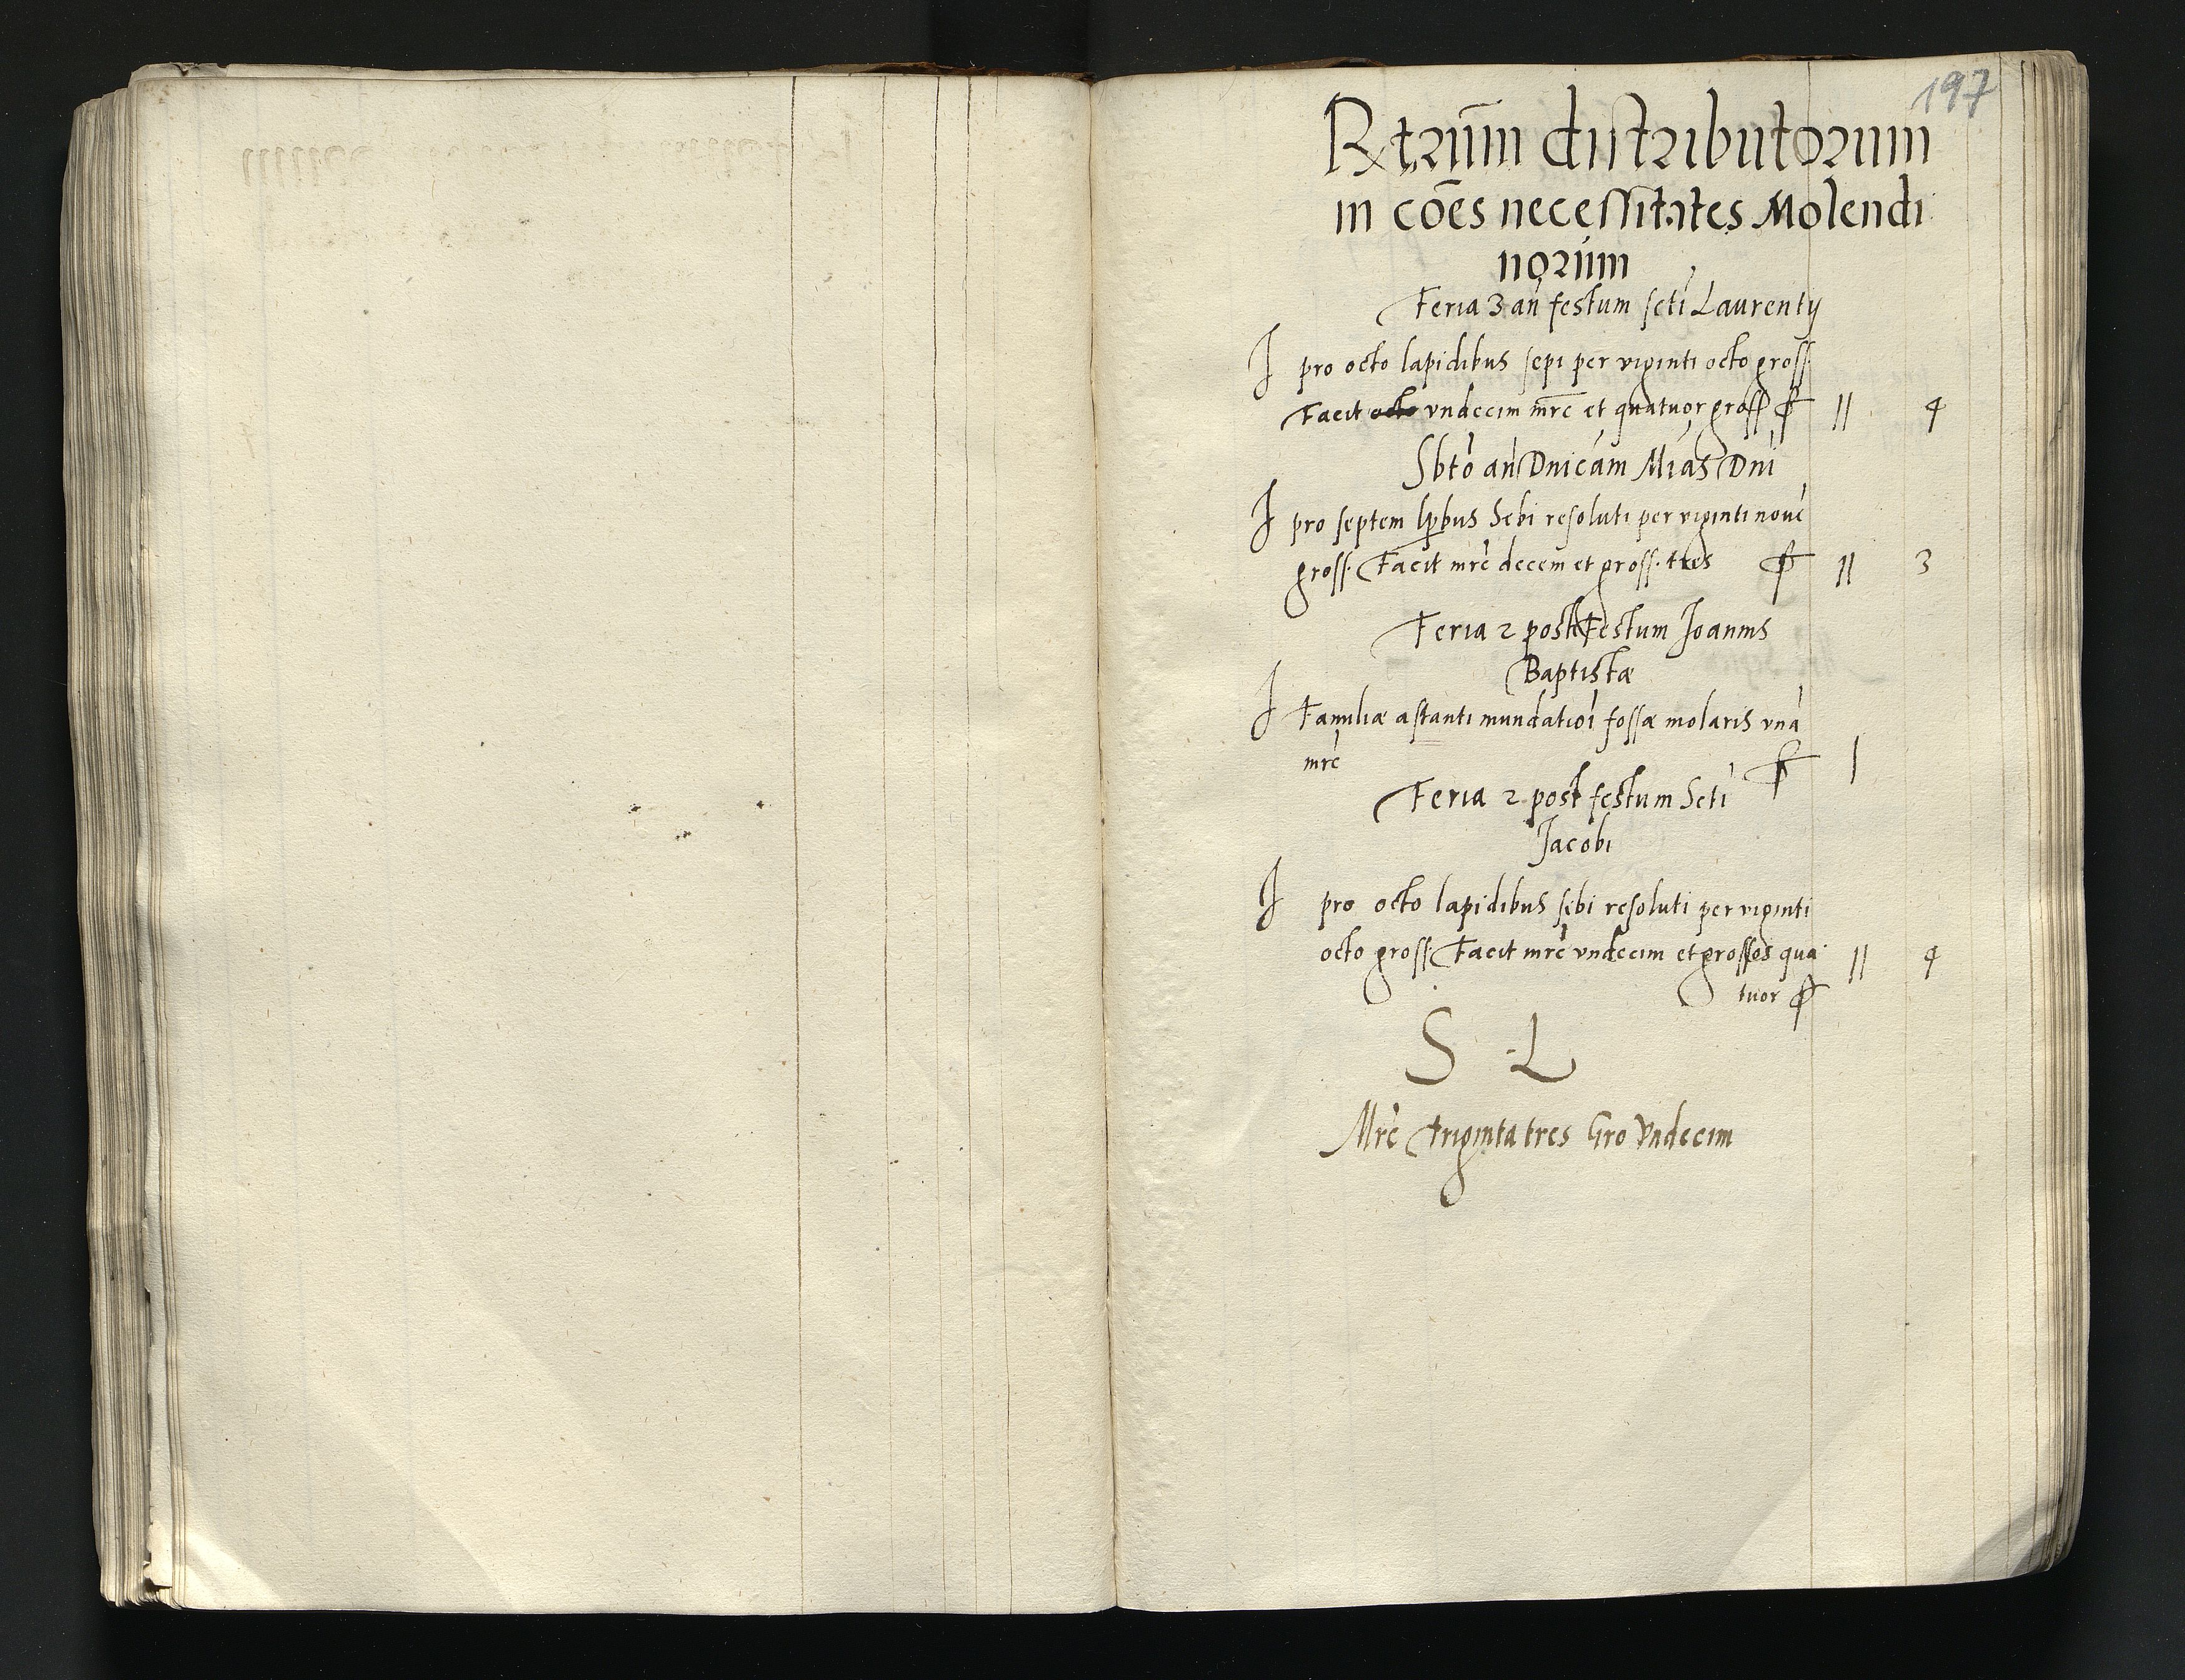 197
Rtrum distributorum
in cōēs necessitates Molendi
norum
Feria 3 an̄ festum scti Laurentÿ
I pro octo lapidibus sepi per viginti octo gross.
Facit octo vndecim mrc̄ et quatuor gross ꝑ 11 4
Sbto an̄ Dnicam Mias Dni
I pro septem lpbus Sebi resoluti per viginti noue
gross. Facit mrc̄ decem et gross. tres ꝑ 11 3
Feria 2 post Festum Joannis
Baptistæ
I Familiæ astanti mundatioi fossæ molaris vna
mrc̄ ꝑ 1
Feria 2 post festum Scti
Jacobi
I pro octo lapidibus sebi resoluti per viginti
octo gross. Facit mrc̄ vndecim et grosses qua 11 4
tuor ꝑ
S L
Mrc̄ triginta tres Gro Vndecim